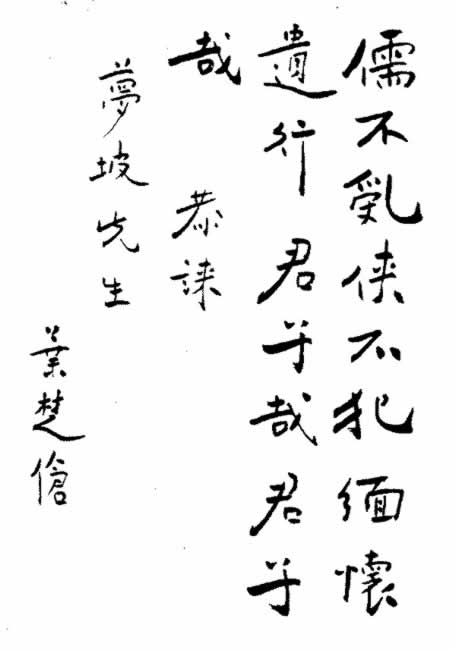 儒不亂俠不犯緬懷
遺行君子哉君子
哉 恭誄
夢坡先生
葉楚傖